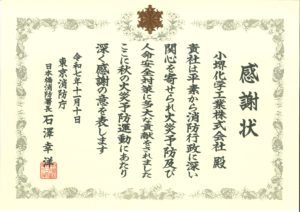 感謝状
小堺化学工業株式会社 殿
貴社は平素から消防行政に深い
関心を寄せられ火災予防及び
人命安全対策に多大な貢献をされました
ここに秋の火災予防運動にあたり
深く感謝の意を表します
令和七年十一月十日
東京消防庁
日本橋消防署長 石澤幸洋